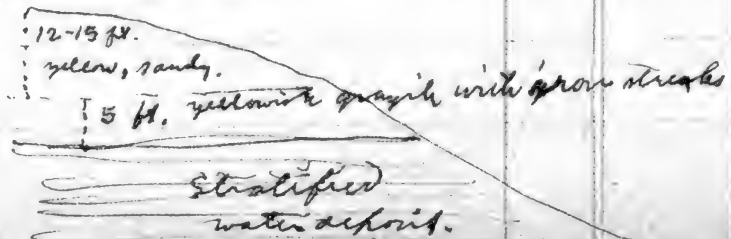 12-15 ft.
yellow, sandy.
5 ft. yellowish grayih with iron streaks
Stratified
water deposit.